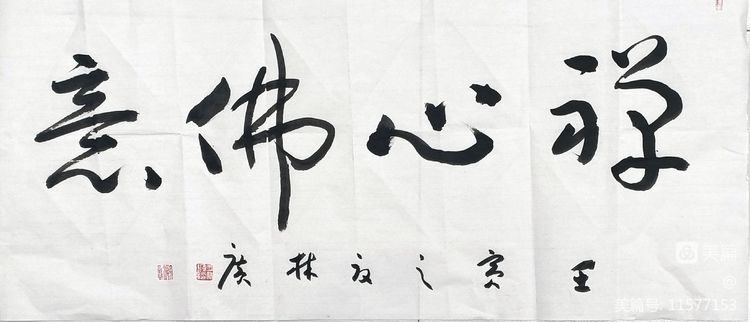 禅心佛意
壬寅之林
美篇
@
美篇号: 11577153